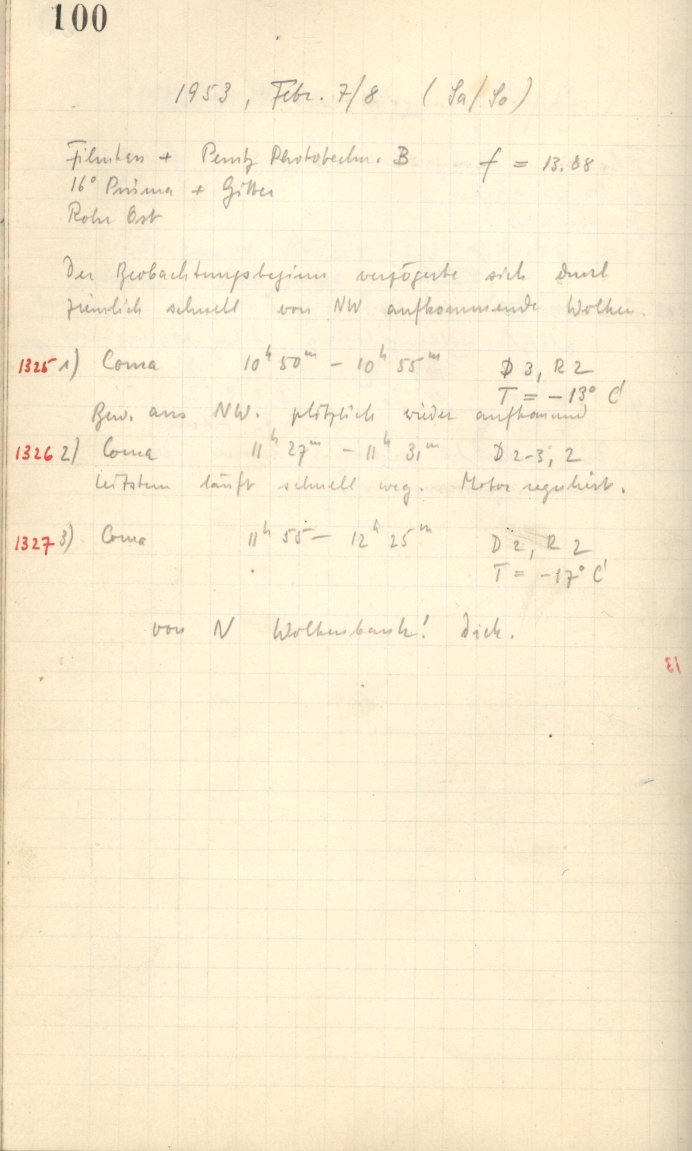 100
1953, Febr. 7/8 (Sa/So)
Filmkass + Perutz Phototechn. B f = 13.88
16° Prisma + Gitter
Rohr Ost
Der Beobachtungsbeginn verzögerte sich durch
ziemlich schnell von NW aufkommende Wolken.
1325 1) Coma 10h 50m – 10h 55m D 3, R 2
T = –13° C
Bew. aus NW. plötzlich wieder aufkommend
1326 2) Coma 11h 27m – 11h 31m D 2-3, 2
Leitstern läuft schnell weg. Motor reguliert.
1327 3) Coma 11h 55 – 12h 25m D 2, R 2
T = –17° C
von N Wolkenbank! Dick.
13